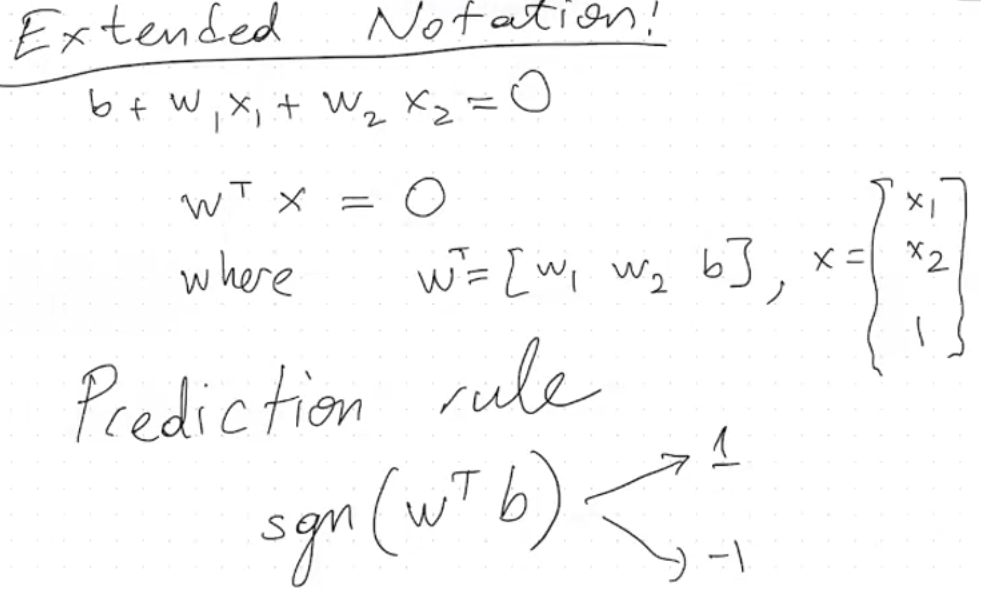 Extended Notation!
b + w₁x₁ + w₂ x₂ = 0
wᵀ x = 0
where wᵀ = [w₁ w₂ b], x = [x₁ x₂ 1]
Prediction rule
sgn(wᵀ b) → 1
→ -1